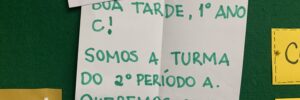 BOA TARDE, 1º ANO
C!
SOMOS A TURMA
DO 2º PERÍODO A.
QUEREMOS